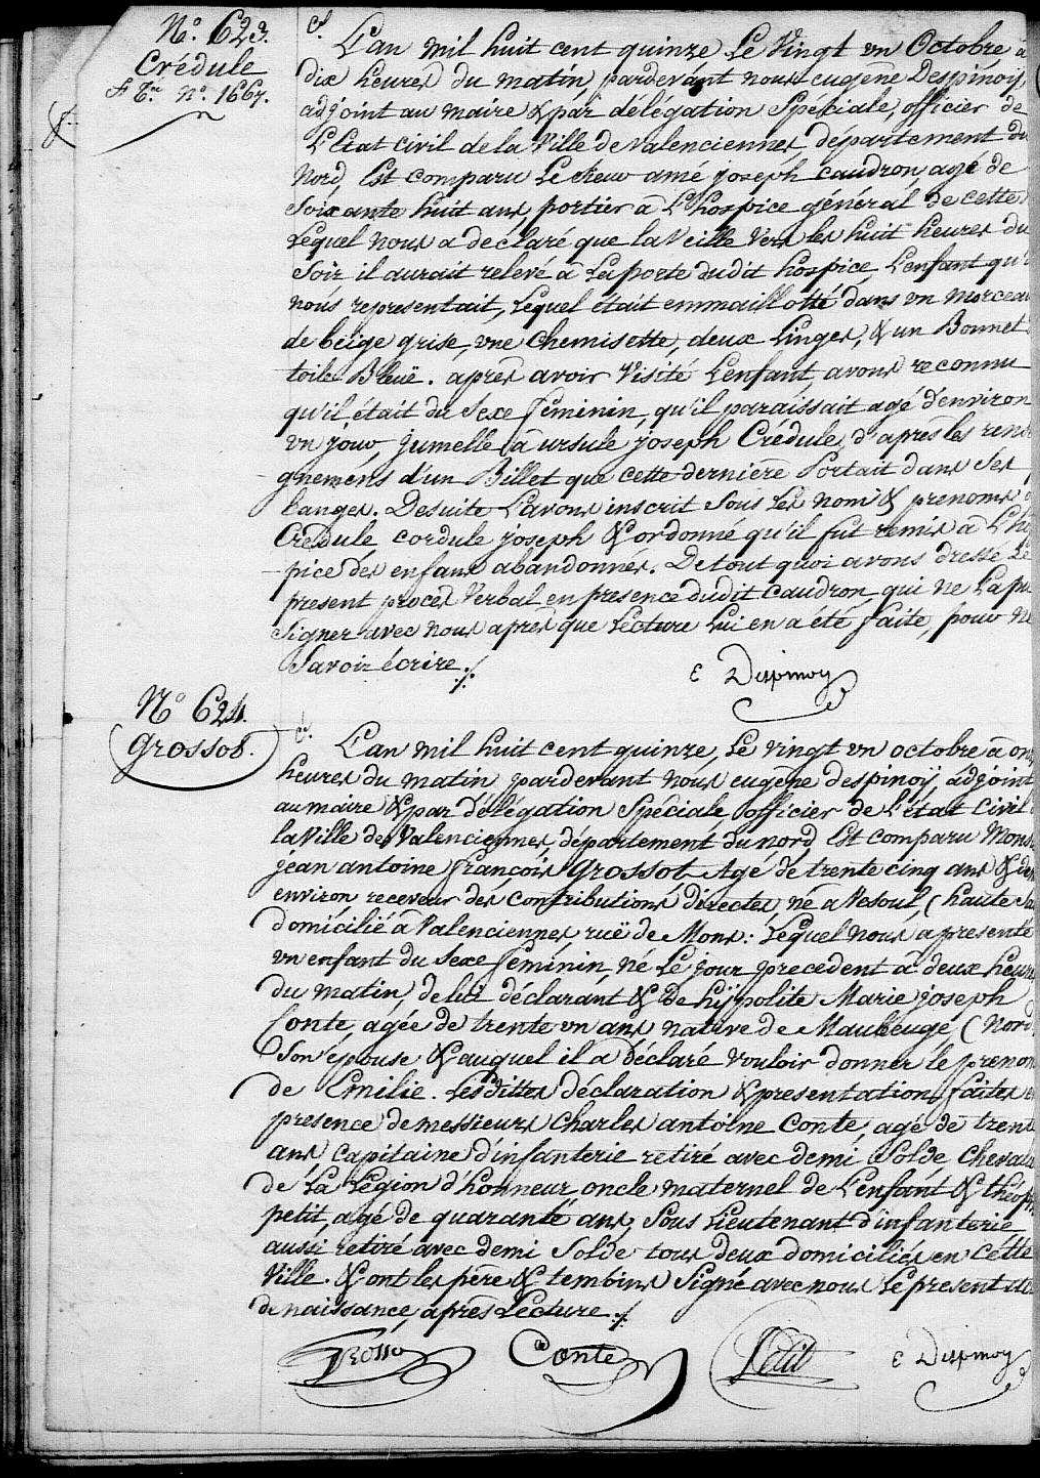 N.° 623.
Crédule
N.° 1667.
L'an mil huit cent quinze le vingt un Octobre à
dix heures du matin, pardevant nous eugène Despinoy,
adjoint au maire & par délégation Speciale, officier de
L'Etat Civil de la Ville de Valenciennes, département du
Nord, Est comparu Le Sieur amé joseph caudron, agé de
Soixante huit ans, portier à L'hospice général de cette
Lequel nous a déclaré que la Veille Vers les huit heures du
Soir il aurait relevé à La porte dudit hospice, L'enfant qu'
nous representait, Lequel était emmaillotté dans un morceau
de beige grise, une chemisette, deux Linges, & un Bonnet
toile Bleuë. après avoir Visité L'enfant, avons reconnu
qu'il était du Sexe féminin, qu'il paraissait agé d'environ
un jour, jumelle à ursule joseph Crédule, d'après les rensei
gnemens d'un Billet que cette dernière Portait dans Ses
langes. Desuite L'avons inscrit Sous Les nom & prenoms
Credule cordule joseph & ordonné qu'il fut remis à L'hos
pice des enfans abandonnés. De tout quoi avons dressé Le
present procès Verbal en presence dudit caudron qui ne L'a pu
Signer avec nous après que Lecture Lui en a été faite, pour ne
Savoir écrire ./.
E Despinoy
N.° 624.
Grossot.
L'an mil huit cent quinze, Le vingt un octobre à onz
heures du matin, pardevant nous eugène despinoÿ, adjoint
au maire & par délégation Spéciale, officier de L'état Civil
la Ville de Valenciennes, département du nord, Est comparu Mons
jean antoine françois Grossot Agé de trente cinq ans & de
environ receveur des contributions directes, né à Vesoul, (haute Sa
domicilié à Valenciennes, ruë de Mons: Lequel nous a presenté
un enfant du Sexe féminin, né Le jour precedent à deux heure
du matin, de lui déclarant & de hÿpolite Marie joseph
Conte, agée de trente un ans native de Maubeuge (Nord
Son épouse & auquel il a déclaré vouloir donner le prenom
de Emilie. Lesdittes déclaration & presentation faites en
presence de messieurs Charles antoine Conte, agé de trente
ans capitaine d'infanterie retiré avec demi Solde, Chevali
de La Légion d'honneur, oncle maternel de L'enfant & théoph
petit, agé de quarante ans, Sous Lieutenant d'infanterie
aussi retiré avec demi Solde tous deux domiciliés en cette
Ville. & ont les père & temoins Signé avec nous Le present acte
de naissance, après Lecture ./.
Grossot Conte Petit E Despinoy